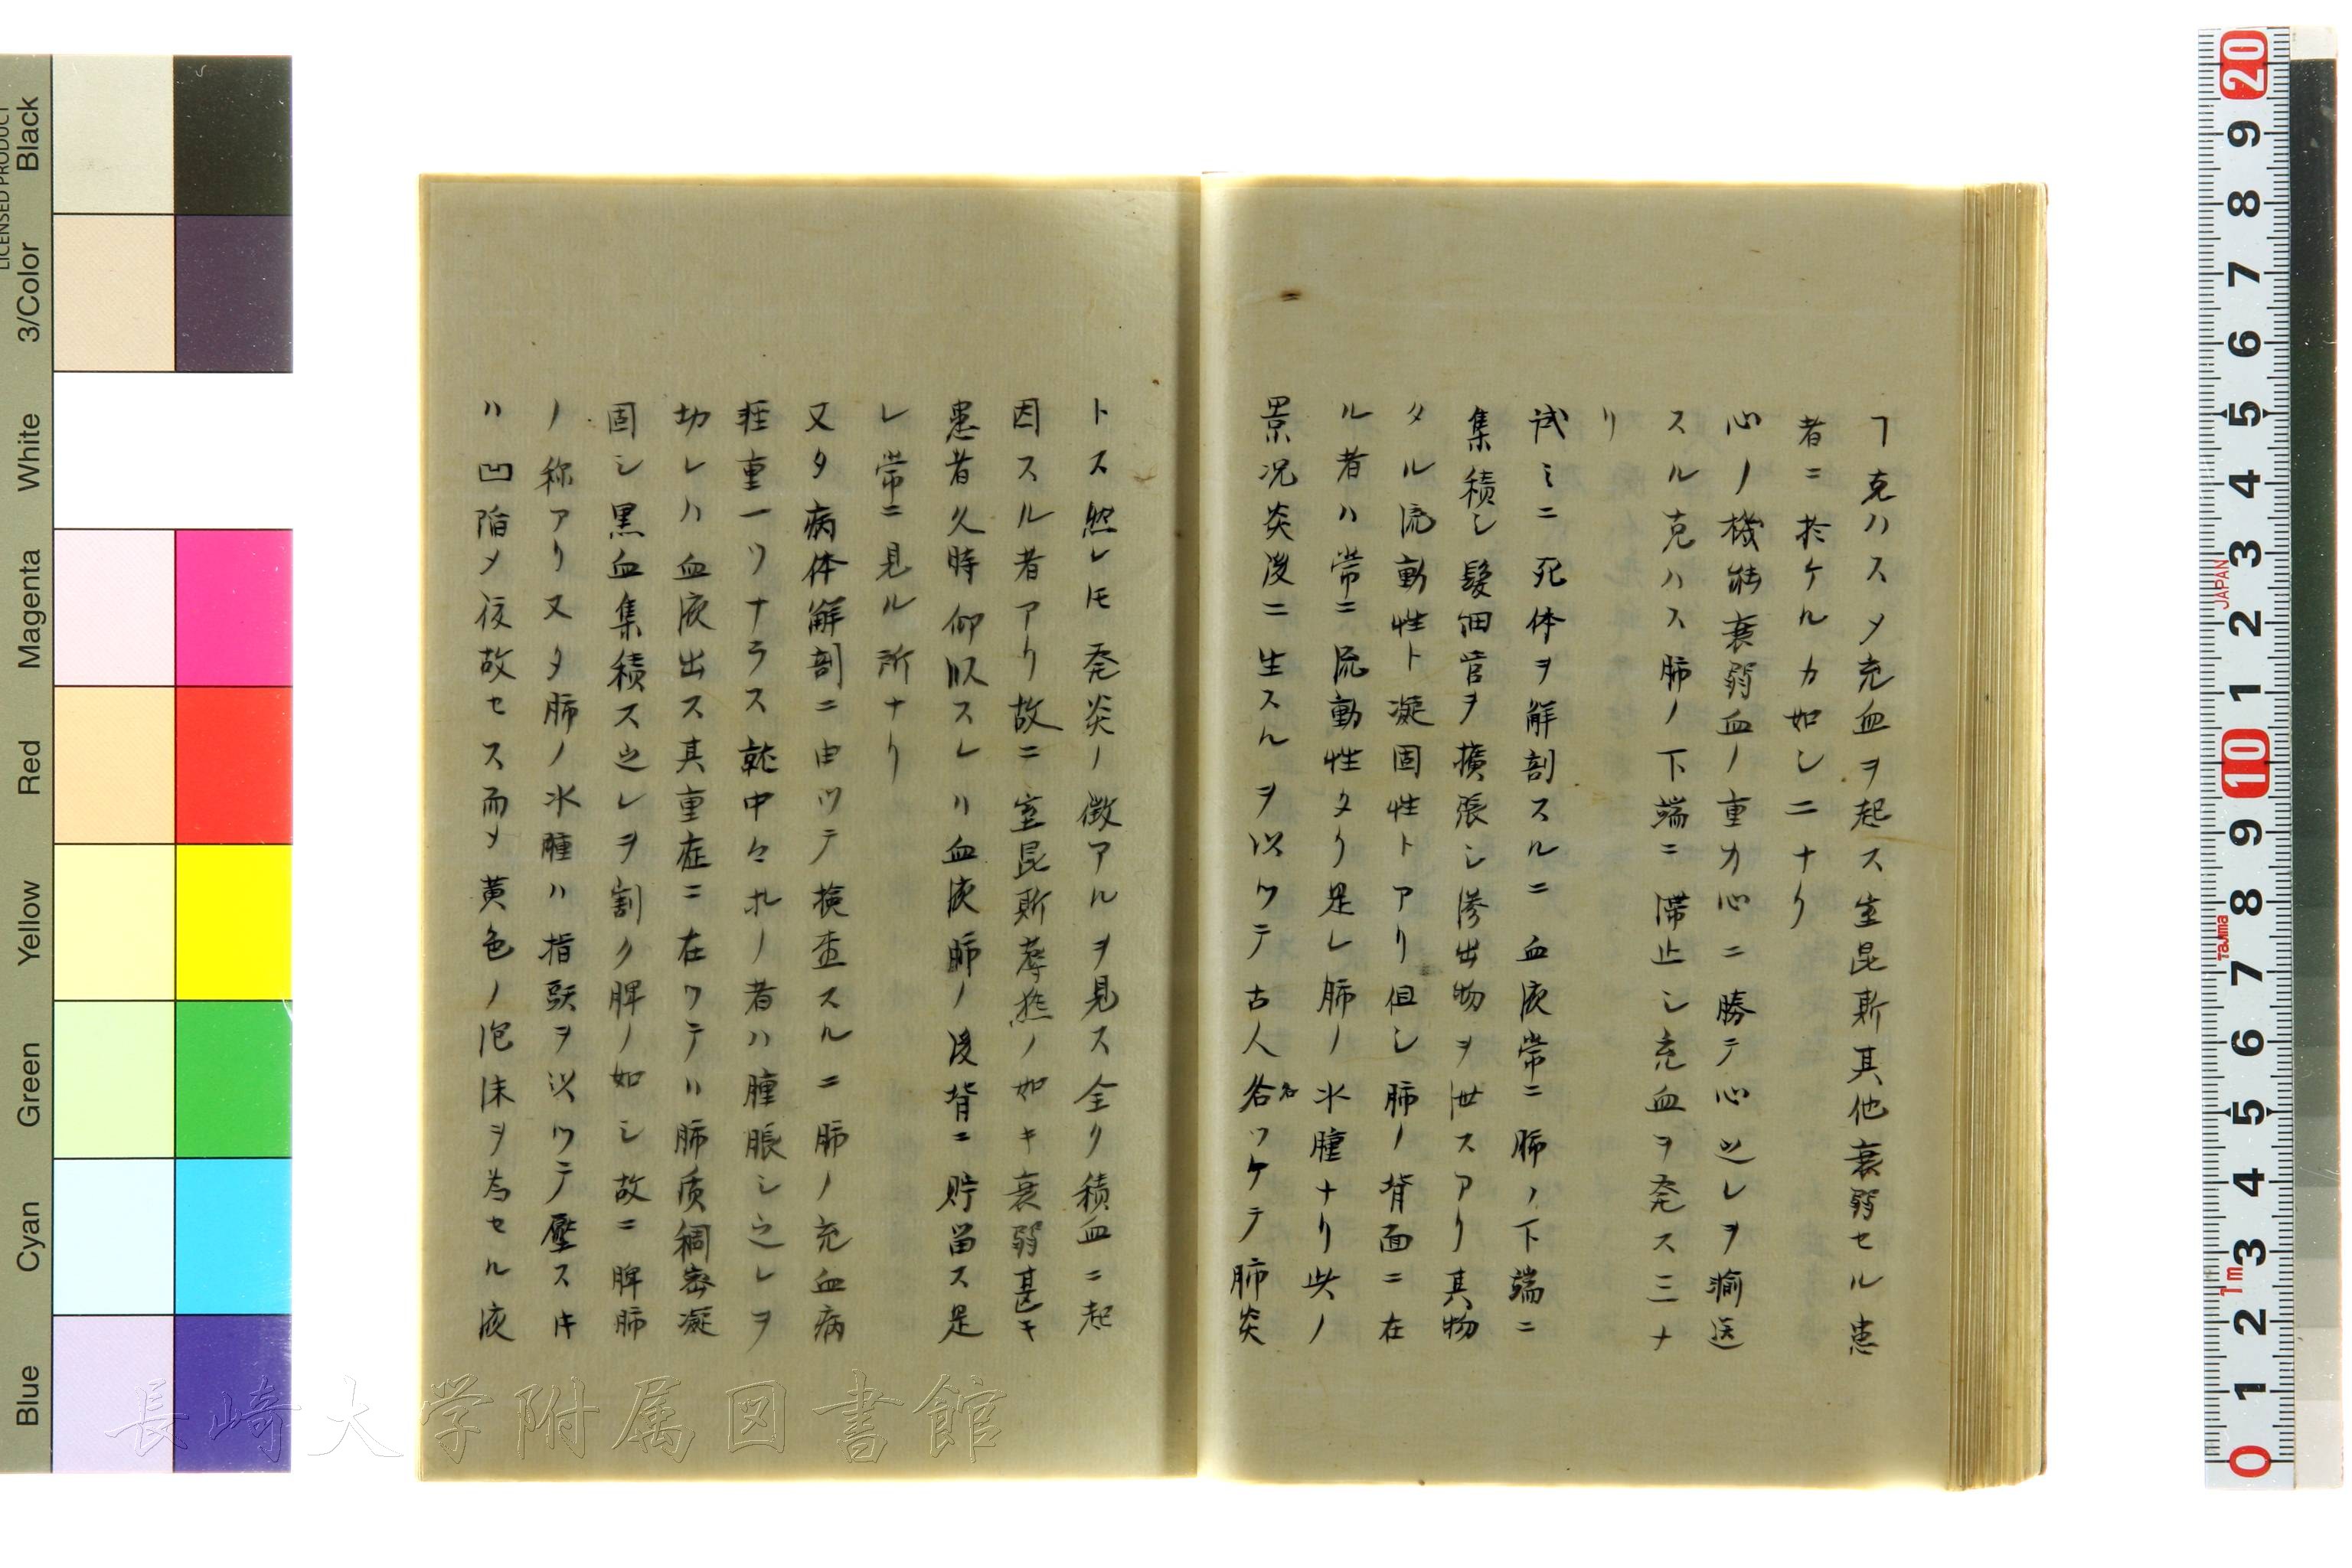 ヿ克ハスメ充血ヲ起ス室昆斯其他衰弱セル患
者ニ於ケルカ如シ二ナリ
心ノ機能衰弱血ノ重力心ニ勝テ心之レヲ揄送
スル克ハス肺ノ下端ニ滞止シ充血ヲ発ス三ナ
リ
試ミニ死体ヲ解剖スルニ血液常ニ肺ノ下端ニ
集積シ髪細官ヲ擴張シ滲出物ヲ泄スアリ其物
タル流動性ト凝固性トアリ但シ肺ノ背面ニ在
ル者ハ常ニ流動性タリ是レ肺ノ水腫ナリ此ノ
景况炎後ニ生スルヲ以ツテ古人名ツケテ肺炎
名
トス然レ𪜈発炎ノ徴アルヲ見ス全ク積血ニ起
因スル者アリ故ニ室昆斯蓐熱ノ如キ衰弱甚キ
患者久時仰臥スレハ血液肺ノ後背ニ貯留ス是
レ常ニ見ル所ナリ
又タ病体解剖ニ由ツテ検査スルニ肺ノ充血病
軽重一ツナラス就中々ホノ者ハ腫脹シ之レヲ
切レハ血液出ス其重症ニ在ツテハ肺质稠密凝
固シ黒血集積ス之レヲ割ク脾ノ如シ故ニ脾肺
ノ称アリ又タ肺ノ水腫ハ指頭ヲ以ツテ壓スキ
ハ凹陥メ復故セス而メ黄色ノ泡沫ヲ為セル液
長崎大学附属図書館
LICENSED PRODUCT
Black
3/Color
White
Magenta
Red
Yellow
Green
Cyan
Blue
20 9 8 7 6 5 4 3 2 1 10 9 8 7 6 5 4 3 2 1 0
JAPAN
Tajima
1m